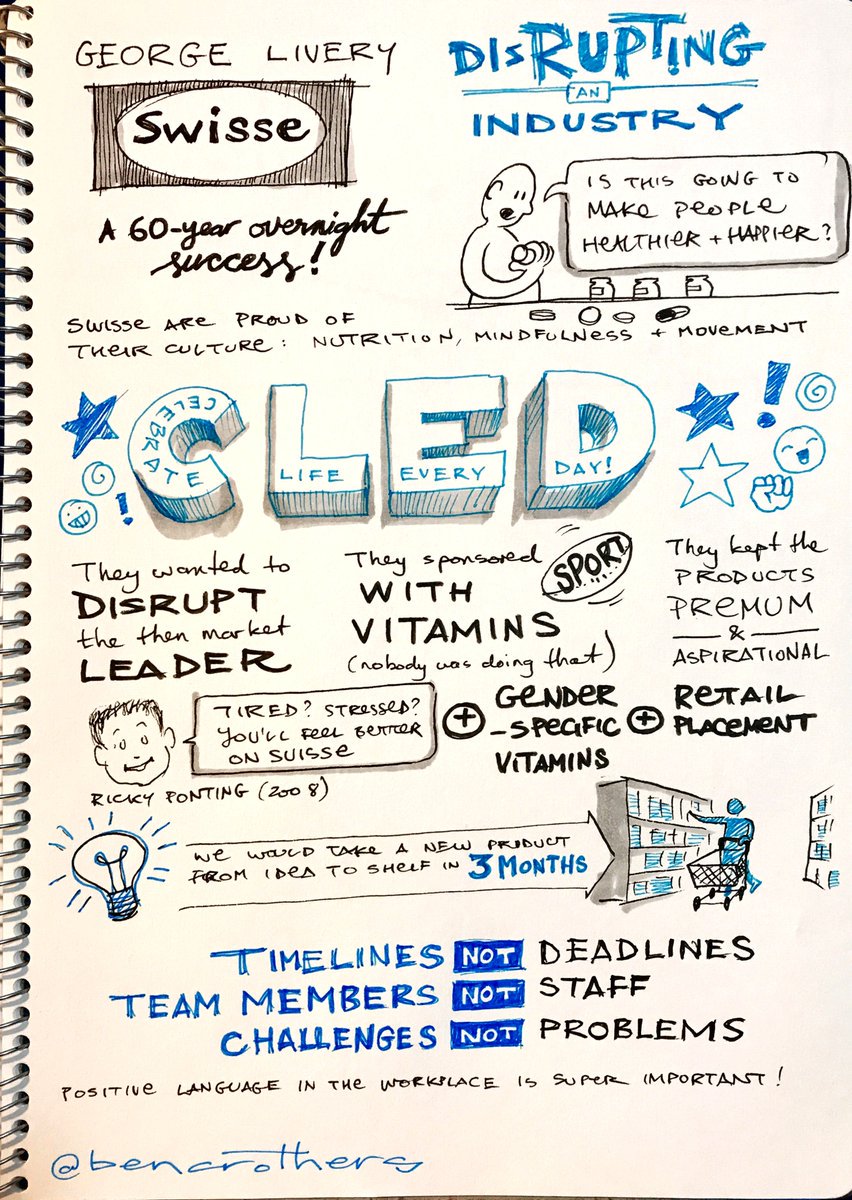 GEORGE LIVERY
Swisse
A 60-year overnight
success!
DISRUPTING
AN
INDUSTRY
IS THIS GOING TO
MAKE PEOPLE
HEALTHIER + HAPPIER?
SWISSE ARE PROUD OF
THEIR CULTURE: NUTRITION, MINDFULNESS + MOVEMENT
CLED
CELEBRATE
LIFE
EVERY
DAY!
They wanted to
DISRUPT
the then market
LEADER
They sponsored
SPORT
WITH
VITAMINS
(nobody was doing that)
They kept the
PRODUCTS
PREMUM
&
ASPIRATIONAL
TIRED? STRESSED?
YOU'LL FEEL BETTER
ON SUISSE
RICKY PONTING (2008)
+ GENDER
-SPECIFIC
VITAMINS
+ RETAIL
PLACEMENT
WE WOULD TAKE A NEW PRODUCT
FROM IDEA TO SHELF IN 3 MONTHS
TIMELINES NOT DEADLINES
TEAM MEMBERS NOT STAFF
CHALLENGES NOT PROBLEMS
POSITIVE LANGUAGE IN THE WORKPLACE IS SUPER IMPORTANT!
@bencrothers